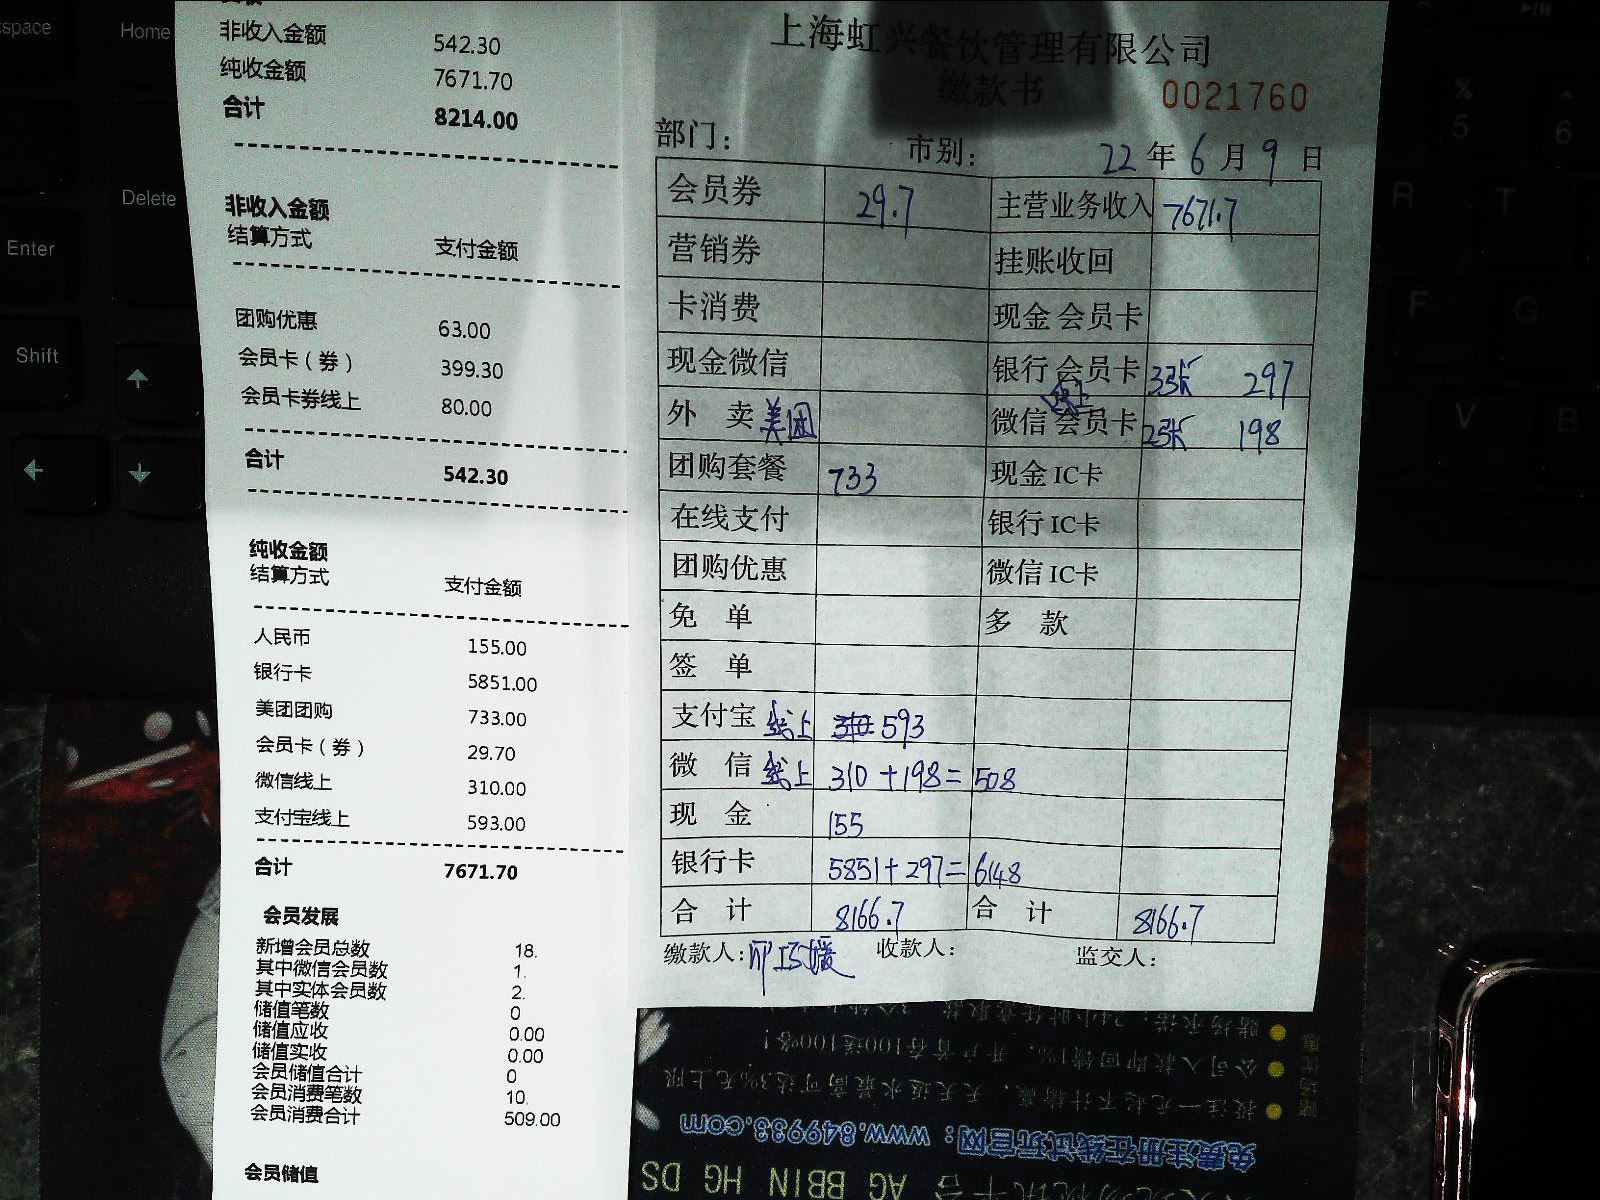 非收入金额 542.30
纯收金额 7671.70
合计 8214.00
非收入金额
结算方式 支付金额
团购优惠 63.00
会员卡（券） 399.30
会员卡券线上 80.00
合计 542.30
纯收金额
结算方式 支付金额
人民币 155.00
银行卡 5851.00
美团团购 733.00
会员卡（券） 29.70
微信线上 310.00
支付宝线上 593.00
合计 7671.70
会员发展
新增会员总数 18.
其中微信会员数 1.
其中实体会员数 2.
储值笔数 0
储值应收 0.00
储值实收 0.00
会员储值合计 0
会员消费笔数 10.
会员消费合计 509.00
会员储值
上海虹兴餐饮管理有限公司
缴款书 0021760
部门： 市别： 22 年 6 月 9 日
会员券 29.7 主营业务收入 7671.7
营销券 挂账收回
卡消费 现金 会员卡
现金微信 银行 会员卡 3张 297
外 卖 美团 微信 线上 会员卡 2张 198
团购套餐 733 现金 IC卡
在线支付 银行 IC卡
团购优惠 微信 IC卡
免 单 多 款
签 单
支付宝 线上 310 593
微 信 线上 310+198=508
现 金 155
银行卡 5851+297=6148
合 计 8166.7 合 计 8166.7
缴款人： 收款人： 监交人：
space
Home
Delete
Enter
Shift
%
5
6
R
T
F
G
V
B
公司入款即回馈1%，开户首存100送100咯！
投注一元起不计输赢，天天返水最高可达3%无上限。
免费注册在线试玩官网：www.849933.com
AG BBIN HG DS